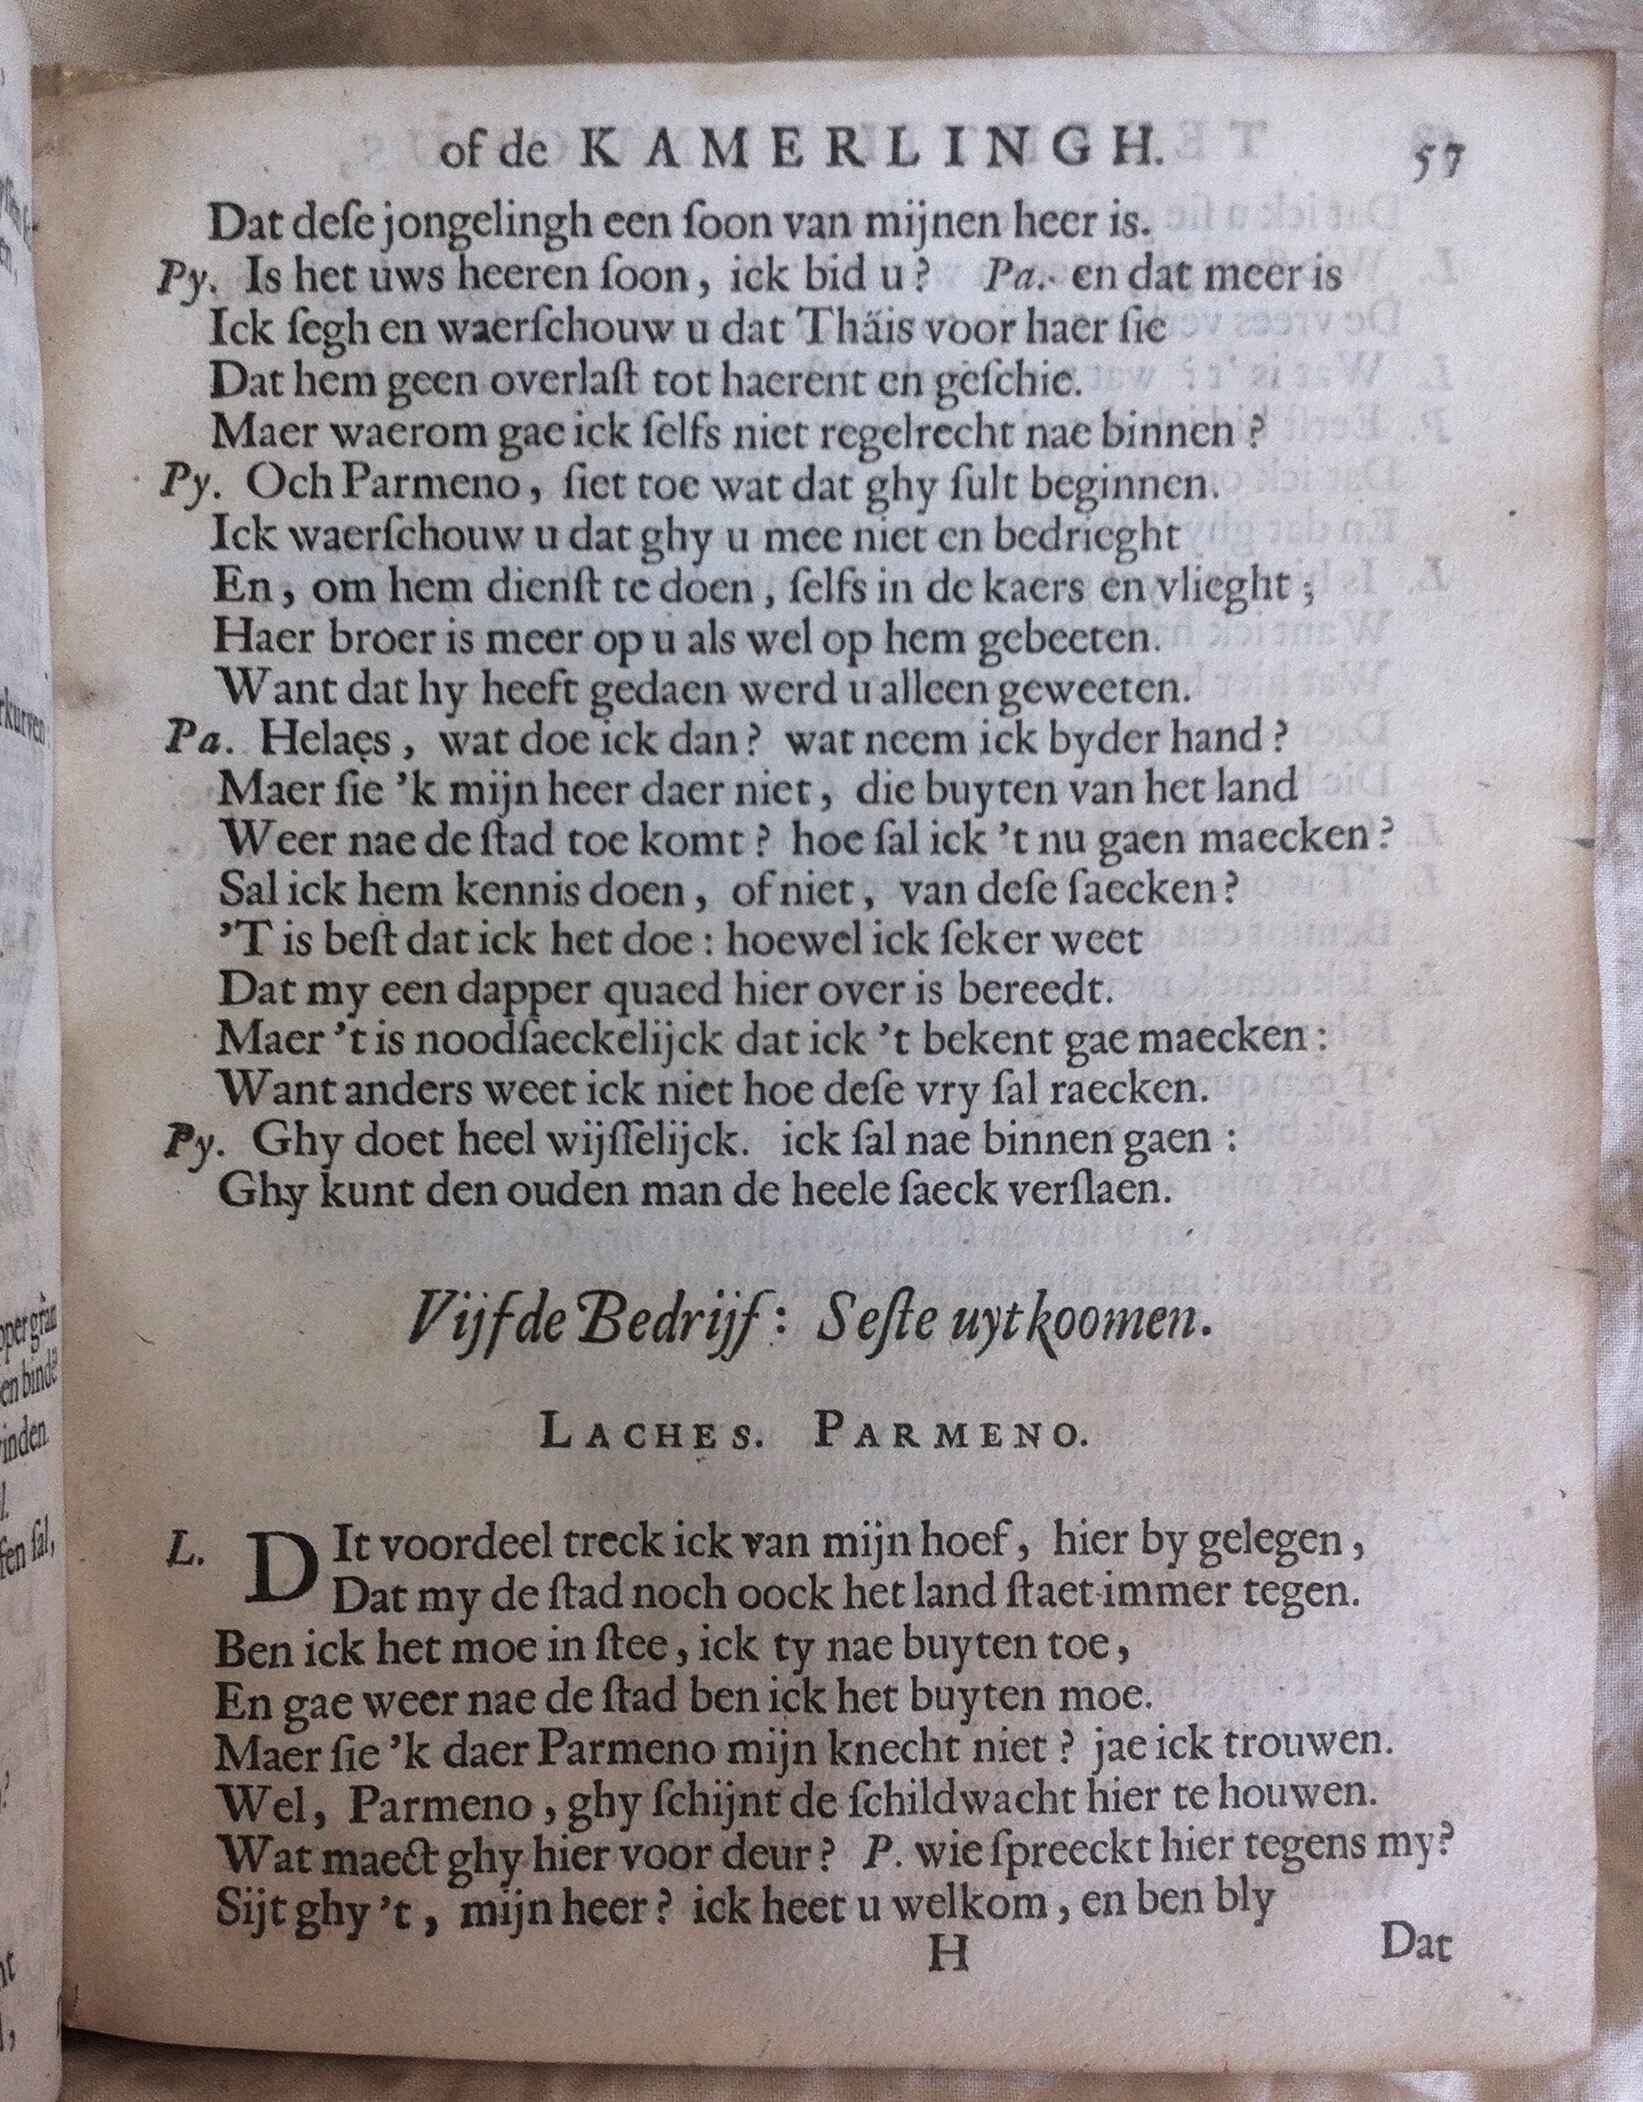 of de KAMERLINGH. 57
Dat deſe jongelingh een ſoon van mijnen heer is.
Py. Is het uws heeren ſoon, ick bid u? Pa. en dat meer is
Ick ſegh en waerſchouw u dat Thäis voor haer ſie
Dat hem geen overlaſt tot haerent en geſchie.
Maer waerom gae ick ſelfs niet regelrecht nae binnen?
Py. Och Parmeno, ſiet toe wat dat ghy ſult beginnen.
Ick waerſchouw u dat ghy u mee niet en bedrieght
En, om hem dienſt te doen, ſelfs in de kaers en vlieght;
Haer broer is meer op u als wel op hem gebeeten.
Want dat hy heeft gedaen werd u alleen geweeten.
Pa. Helaes, wat doe ick dan? wat neem ick byder hand?
Maer ſie 'k mijn heer daer niet, die buyten van het land
Weer nae de ſtad toe komt? hoe ſal ick 't nu gaen maecken?
Sal ick hem kennis doen, of niet, van deſe ſaecken?
'T is beſt dat ick het doe: hoewel ick ſeker weet
Dat my een dapper quaed hier over is bereedt.
Maer 't is noodſaeckelijck dat ick 't bekent gae maecken:
Want anders weet ick niet hoe deſe vry ſal raecken.
Py. Ghy doet heel wijſſelijck. ick ſal nae binnen gaen:
Ghy kunt den ouden man de heele ſaeck verſlaen.
Vijfde Bedrijf: Seſte uytkoomen.
LACHES. PARMENO.
L. DIt voordeel treck ick van mijn hoef, hier by gelegen,
Dat my de ſtad noch oock het land ſtaet immer tegen.
Ben ick het moe in ſtee, ick ty nae buyten toe,
En gae weer nae de ſtad ben ick het buyten moe.
Maer ſie 'k daer Parmeno mijn knecht niet? jae ick trouwen.
Wel, Parmeno, ghy ſchijnt de ſchildwacht hier te houwen.
Wat maect ghy hier voor deur? P. wie ſpreeckt hier tegens my?
Sijt ghy 't, mijn heer? ick heet u welkom, en ben bly
H Dat